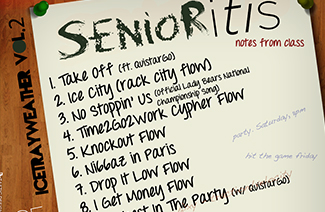 SENIORitis
notes from class
ICETRAYWEATHER VOL.2
1. Take Off (ft. avistarGo)
2. Ice City (rack city flow)
3. No Stoppin' Us (Official Lady Bears National Championship Song)
4. Time2Go2Work Cypher Flow
5. Knockout Flow
6. Ni66az in Paris
7. Drop it Low Flow
8. I Get Money Flow
In The Party (w/ avistarGo)
party, Saturday, 9pm
hit the game friday